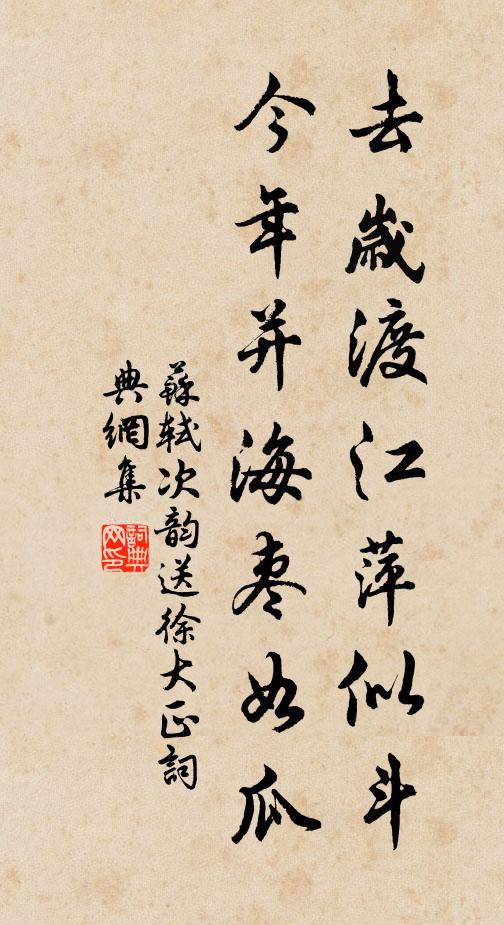 去歲渡江萍似斗
今年并海棗如瓜
蘇軾次韵送徐大正詞
典網集
詞典
网印